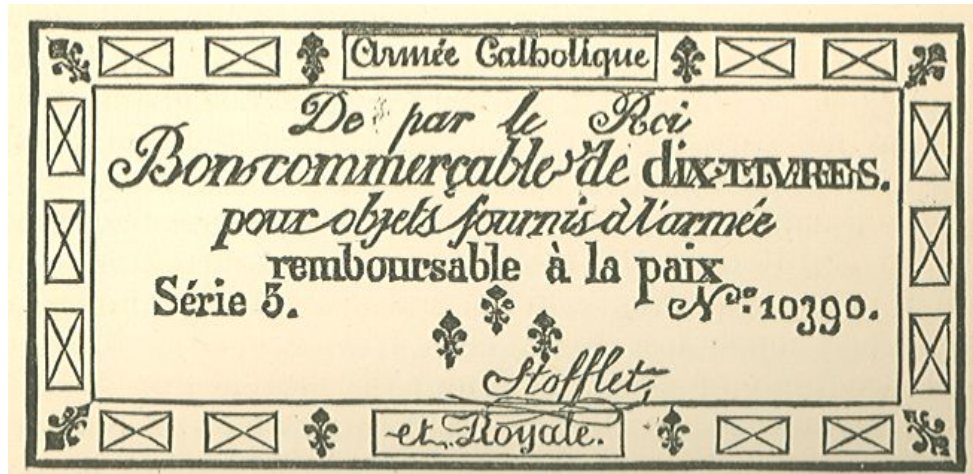 Armée Catholique
De par le Roi
Bon commerçable de dix LIVRES.
pour objets fournis à l'armée
remboursable à la paix
Série 3. Nº: 10390.
Stofflet
et Royale.